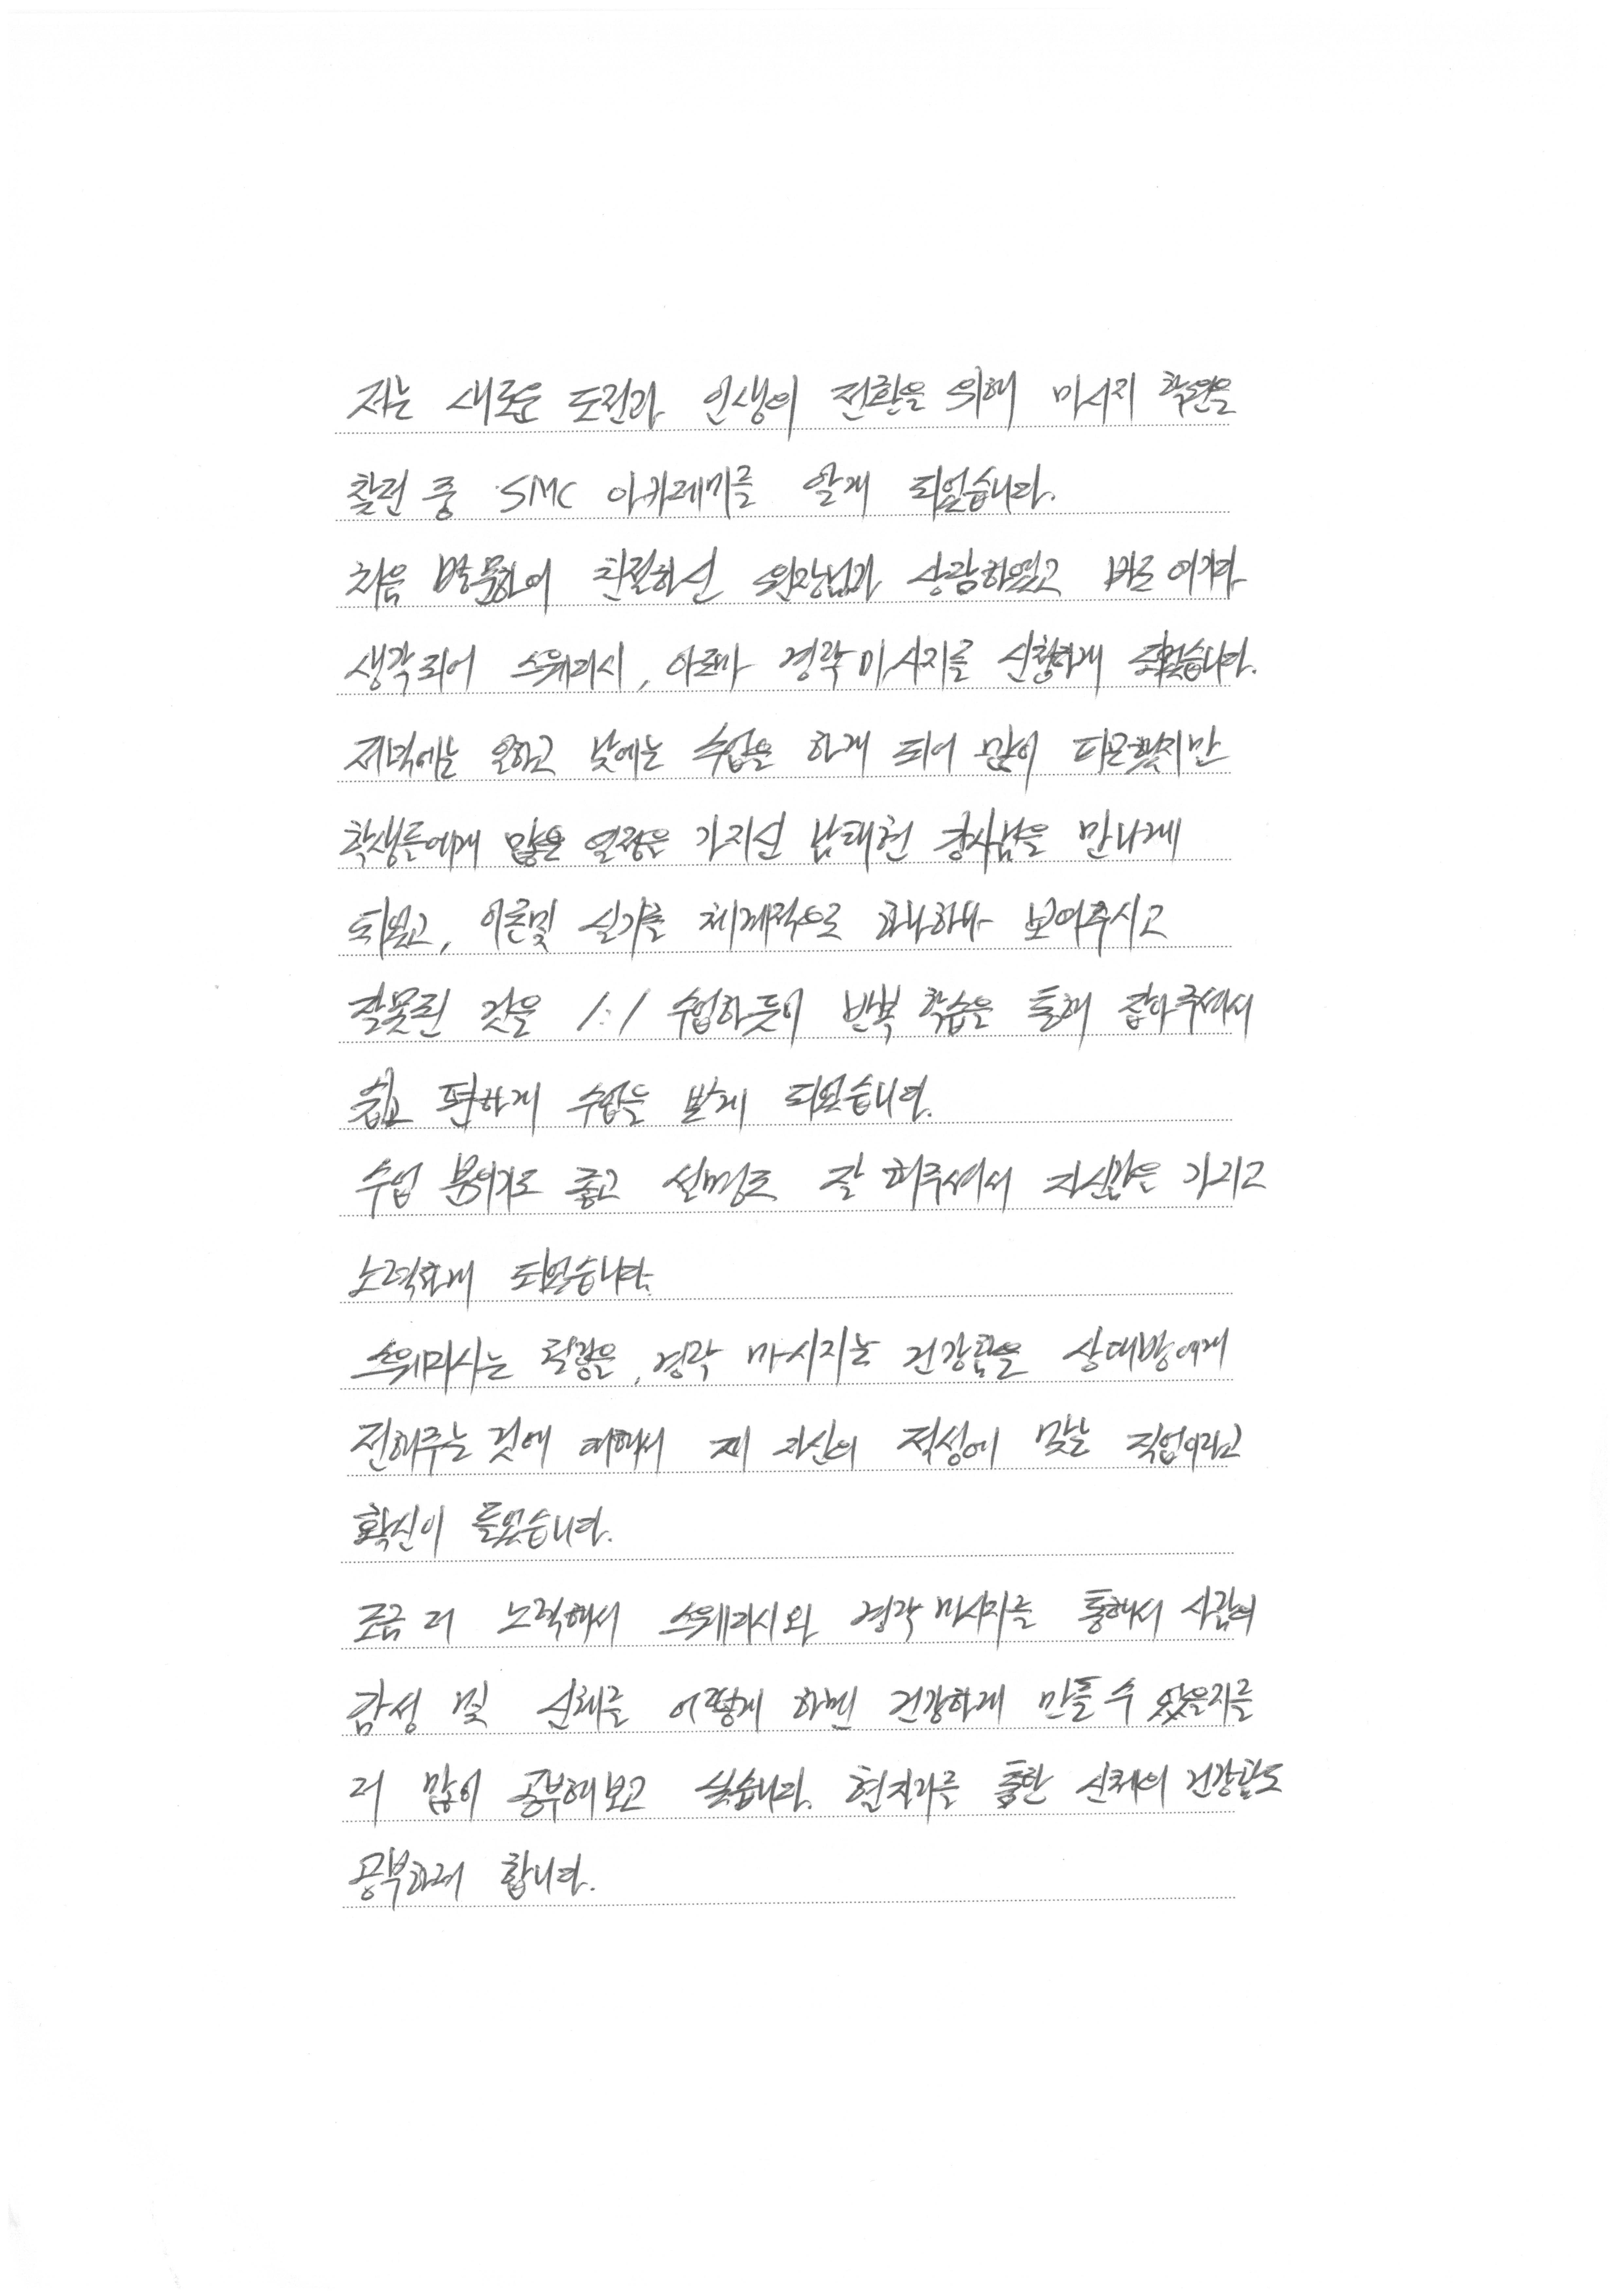 저는 새로운 도전과 인생의 전환을 위해 마사지 학원을
찾던 중 SMC 아카데미를 알게 되었습니다.
처음 방문하여 친절하신 원장님과 상담하였고 바로 여기라
생각되어 스웨디시, 아로마 경락마사지를 신청하게 되었습니다.
저녁에는 일하고 낮에는 수업을 하게 되어 많이 피곤했지만
학생들에게 많은 열정을 가지신 남태현 강사님을 만나게
되었고, 이론및 실기를 체계적으로 하나하나 보여주시고
잘못된 것을 1:1 수업하듯이 반복 학습을 통해 잡아주셔서
쉽고 편하게 수업을 받게 되었습니다.
수업 분위기도 좋고 설명도 잘 해주셔서 자신감을 가지고
노력하게 되었습니다.
스웨디시는 힐링을, 경락 마사지는 건강함을 상대방에게
전해주는 것에 대해서 제 자신의 적성에 맞는 직업이라고
확신이 들었습니다.
조금 더 노력해서 스웨디시와 경락마사지를 통해서 사람의
감성 및 신체를 어떻게 하면 건강하게 만들 수 있을지를
더 많이 공부해보고 싶습니다. 혈자리를 통한 신체의 건강함도
공부하려 합니다.